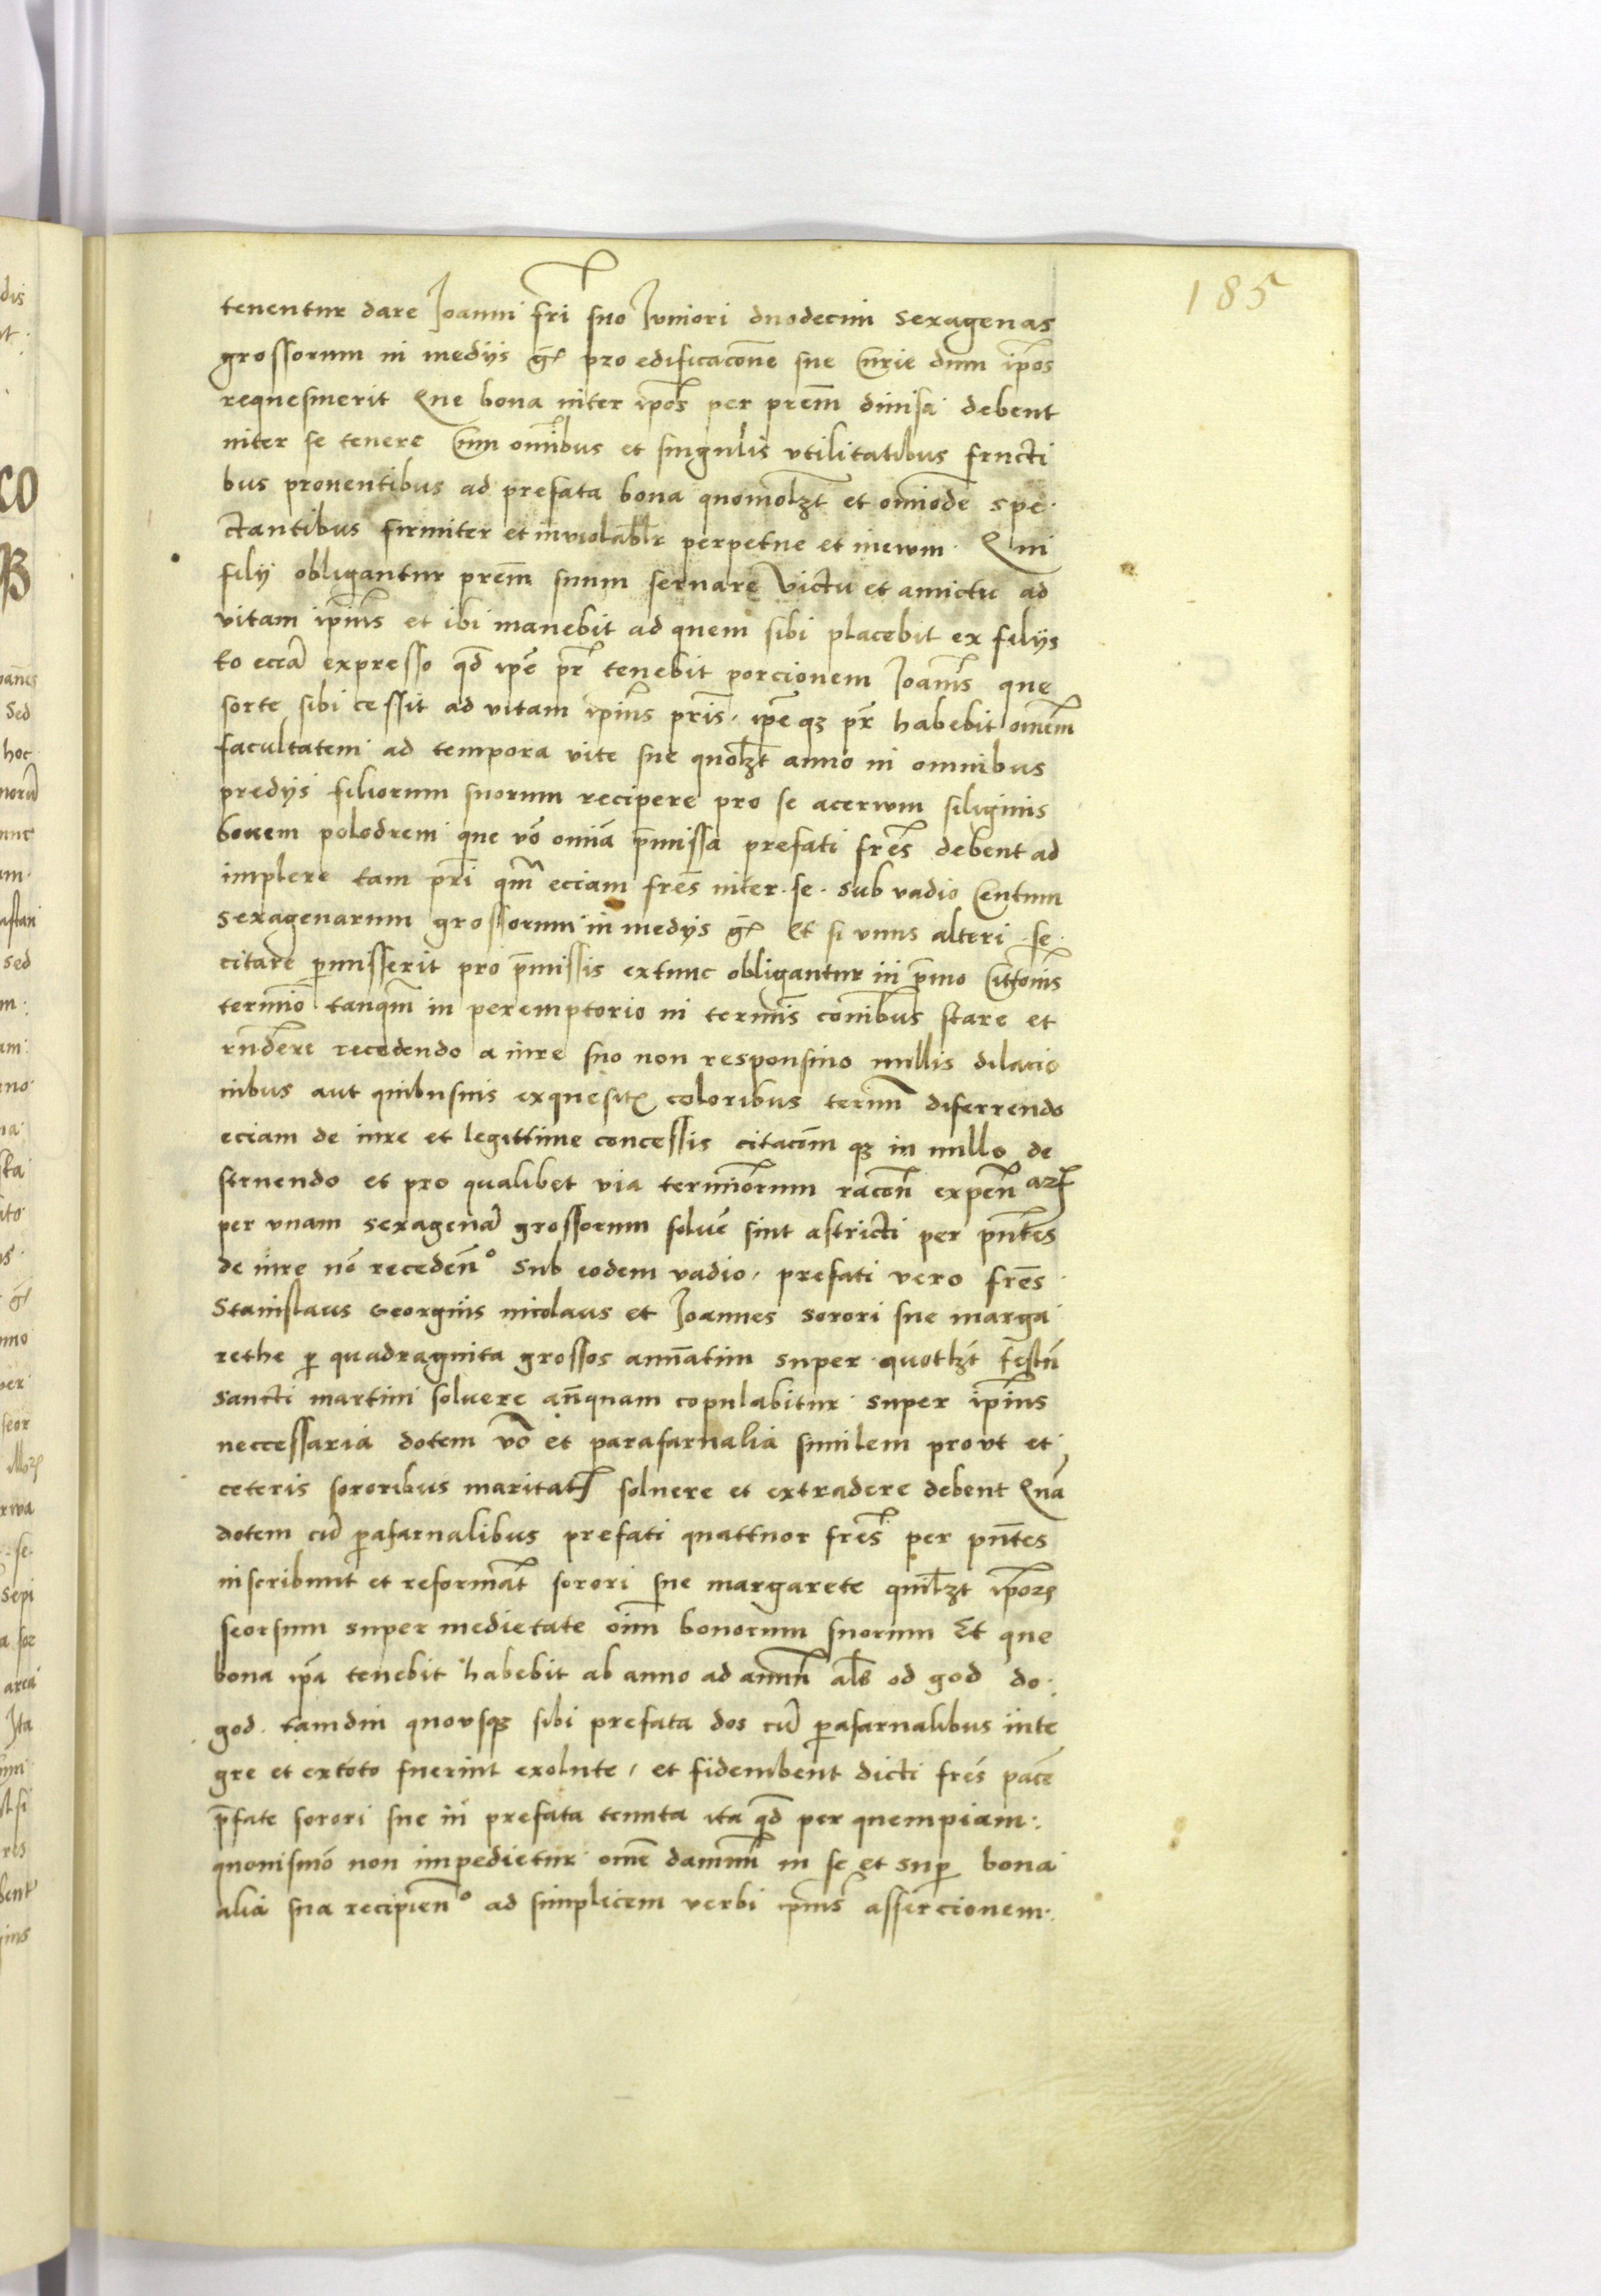 185
tenentur dare Joanni fri suo Juniori duodecim sexagenas
grossorum in medys gr pro edificacone sue Curie dum ipos
requesiuerit Que bona inter ipos per prem diuisa debent
inter se tenere Cum omibus et singulis vtilitatibus fructi
bus prouentibus ad prefata bona quomolzt et omiode spe
ctantibus firmiter et inuiolablr perpetue et in ewm Qui
filij obligantur prem suum seruare victu et amictu ad
vitam ipius et ibi manebit ad quem sibi placebit ex filijs
to eccia expresso qd ipe pr tenebit porcionem Joanis que
sorte sibi cessit ad vitam ipius pris, ipe qz pr habebit omem
facultatem ad tempora vite sue quolzt anno in omnibus
predijs filiorum suorum recipere pro se acerwm siliginis
bouem polodrem que vo omia pmissa prefati fres debent ad
implere tam pri qm eciam fres inter se sub vadio Centum
sexagenarum grossorum in medys gr Et si vnus alteri se
citare pmisserit pro pmissis extunc obligantur in pmo Cittonis
termio tanqm in peremptorio in termis conibus stare et
rndere recedendo a iure suo non responsiuo nullis dilacio
nibus aut quibusuis exquesit coloribus termn diferrendo
eciam de iure et legittime concessis citacom qz in nullo de
struendo et pro qualibet via terminorum racon expen arf
per vnam sexagena grossorum solue sint astricti per pntes
de iure no receden° sub eodem vadio, prefati vero fres
Stanislaus Georgius nicolaus et Joannes sorori sue marga
rethe p quadraginta grossos annatim super quotlzt festu
sancti martini soluere anquam copulabitur super ipius
neccessaria dotem vo et parafarnalia similem prout et
ceteris sororibus maritat soluere et extradere debent Qua
dotem cu pafarnalibus prefati quattuor fres per pntes
inscribunt et reformat sorori sue margarete quilzt ipor
seorsum super medietate oim bonorum suorum Et que
bona ipa tenebit habebit ab anno ad annu als od god do
god tamdiu quousqz sibi prefata dos cu pafarnalibus inte
gre et extoto fuerint exolute, et fidembent dicti fres pace
pfate sorori sue in prefata tenuta ita qd per quempiam
quouismo non impedietur ome damnm in se et sup bona
alia sua recipien° ad simplicem verbi ipius assercionem